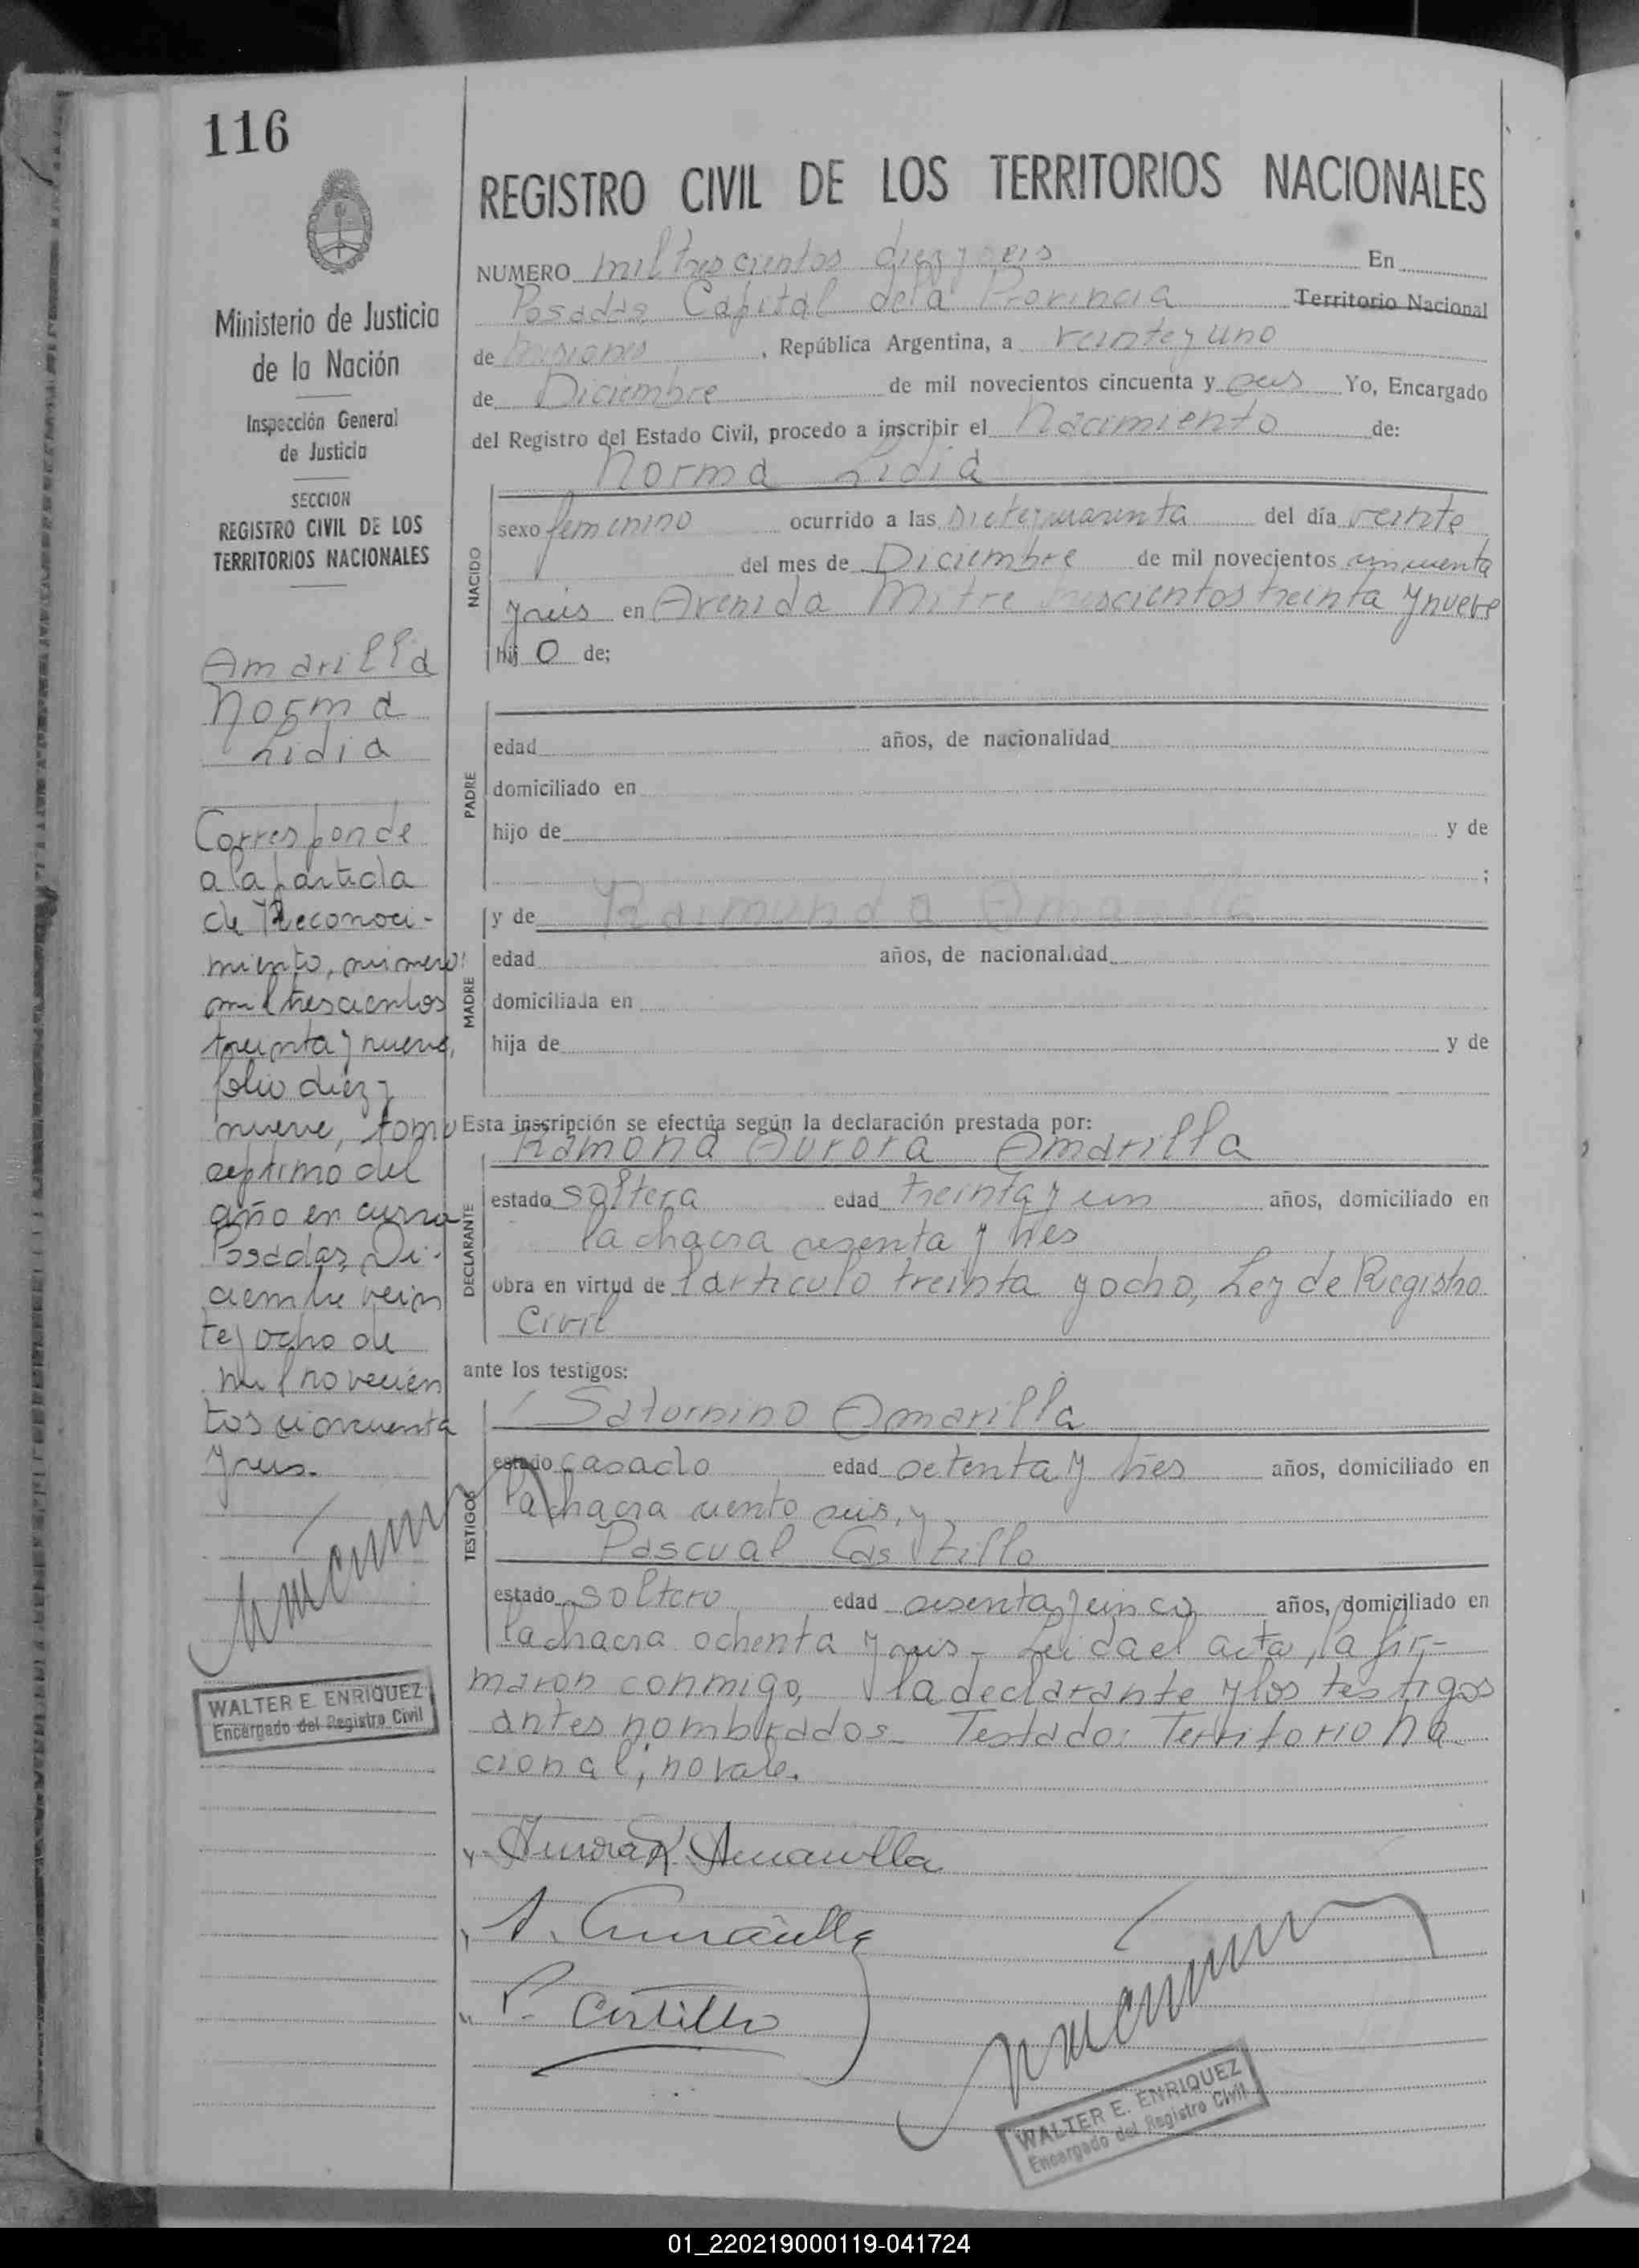 116
Ministerio de Justicia
de la Nación
Inspección General
de Justicia
SECCION
REGISTRO CIVIL DE LOS
TERRITORIOS NACIONALES
Amarilla
Norma
Lidia
Corresponde
a la partida
de Reconoci-
miento, número
mil trescientos
treinta y nueve,
folio diez y
nueve, tomo
septimo del
año en curso
Posadas, Di-
ciembre vein
te y ocho de
mil novecien
tos cincuenta
y seis.
WALTER E. ENRIQUEZ
Encargado del Registro Civil
REGISTRO CIVIL DE LOS TERRITORIOS NACIONALES
NUMERO mil trescientos diez y seis En
Posadas, Capital de la Provincia Territorio Nacional
de Misiones, República Argentina, a veinte y uno
de Diciembre de mil novecientos cincuenta y seis Yo, Encargado
del Registro del Estado Civil, procedo a inscribir el Nacimiento de:
Norma Lidia
NACIDO
sexo femenino ocurrido a las siete y cuarenta del día veinte
del mes de Diciembre de mil novecientos cincuenta
y seis en Avenida Mitre trescientos treinta y nueve
hij o de;
PADRE
edad años, de nacionalidad
domiciliado en
hijo de y de
;
MADRE
y de
edad años, de nacionalidad
domiciliada en
hija de y de
Esta inscripción se efectúa según la declaración prestada por:
DECLARANTE
Ramona Aurora Amarilla
estado soltera edad treinta y un años, domiciliado en
la chacra sesenta y tres
obra en virtud de l artículo treinta y ocho, Ley de Registro
Civil
ante los testigos:
TESTIGOS
Saturnino Amarilla
estado casado edad setenta y tres años, domiciliado en
la chacra ciento seis, y
Pascual Castillo
estado soltero edad sesenta y cinco años, domiciliado en
la chacra ochenta y seis - Leida el acta, la fir-
maron conmigo, la declarante y los testigos
antes nombrados - Testado: Territorio Na
cional; no vale.
Aurora R. Amarilla
S. Amarilla
P. Castillo
WALTER E. ENRIQUEZ
Encargado del Registro Civil
01_220219000119-041724